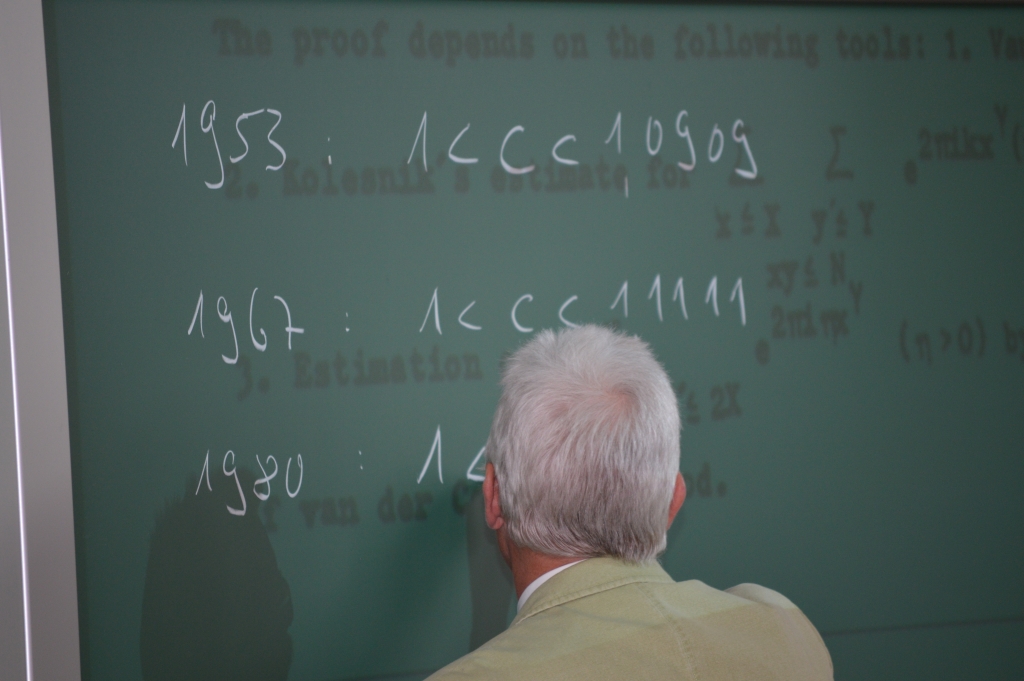 The proof depends on the following tools: 1. Va
1953 : 1 < c < 1,0909
2. Kolesnik's estimate for Σ Σ e 2πikx^Y (
x ≤ X y ≤ Y
xy ≤ N
1967 : 1 < c < 1,1111
e 2πiηx^Y (η > 0) by
3. Estimation ≤ 2X
1980 : 1 <
of van der